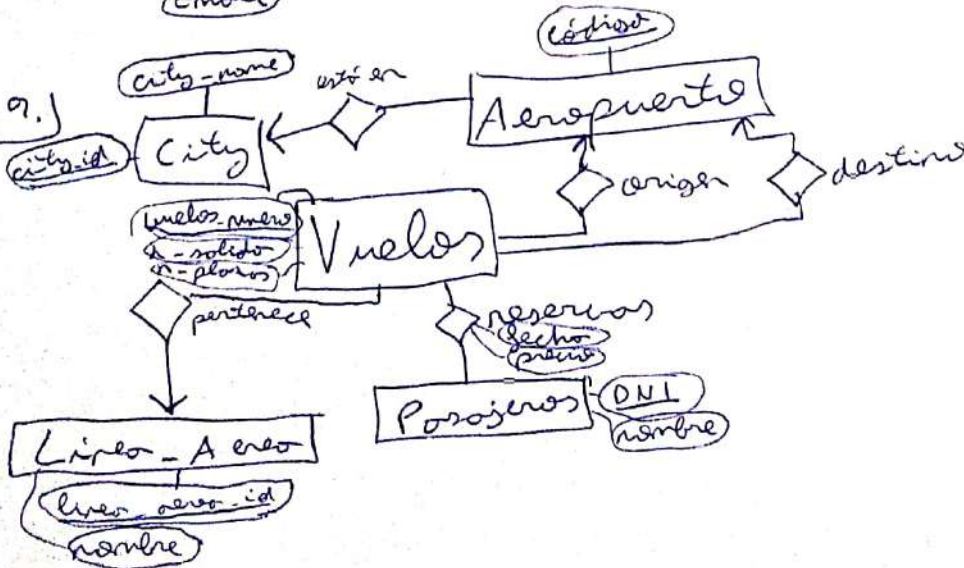 código
city_name
está en
Aeropuerto
9.)
city_id
City
origen
destino
vuelos_numero
h_salida
n_plazas
Vuelos
pertenece
reservas
fecha
precio
Pasajeros
DNI
nombre
Linea_Aerea
linea_aerea_id
nombre